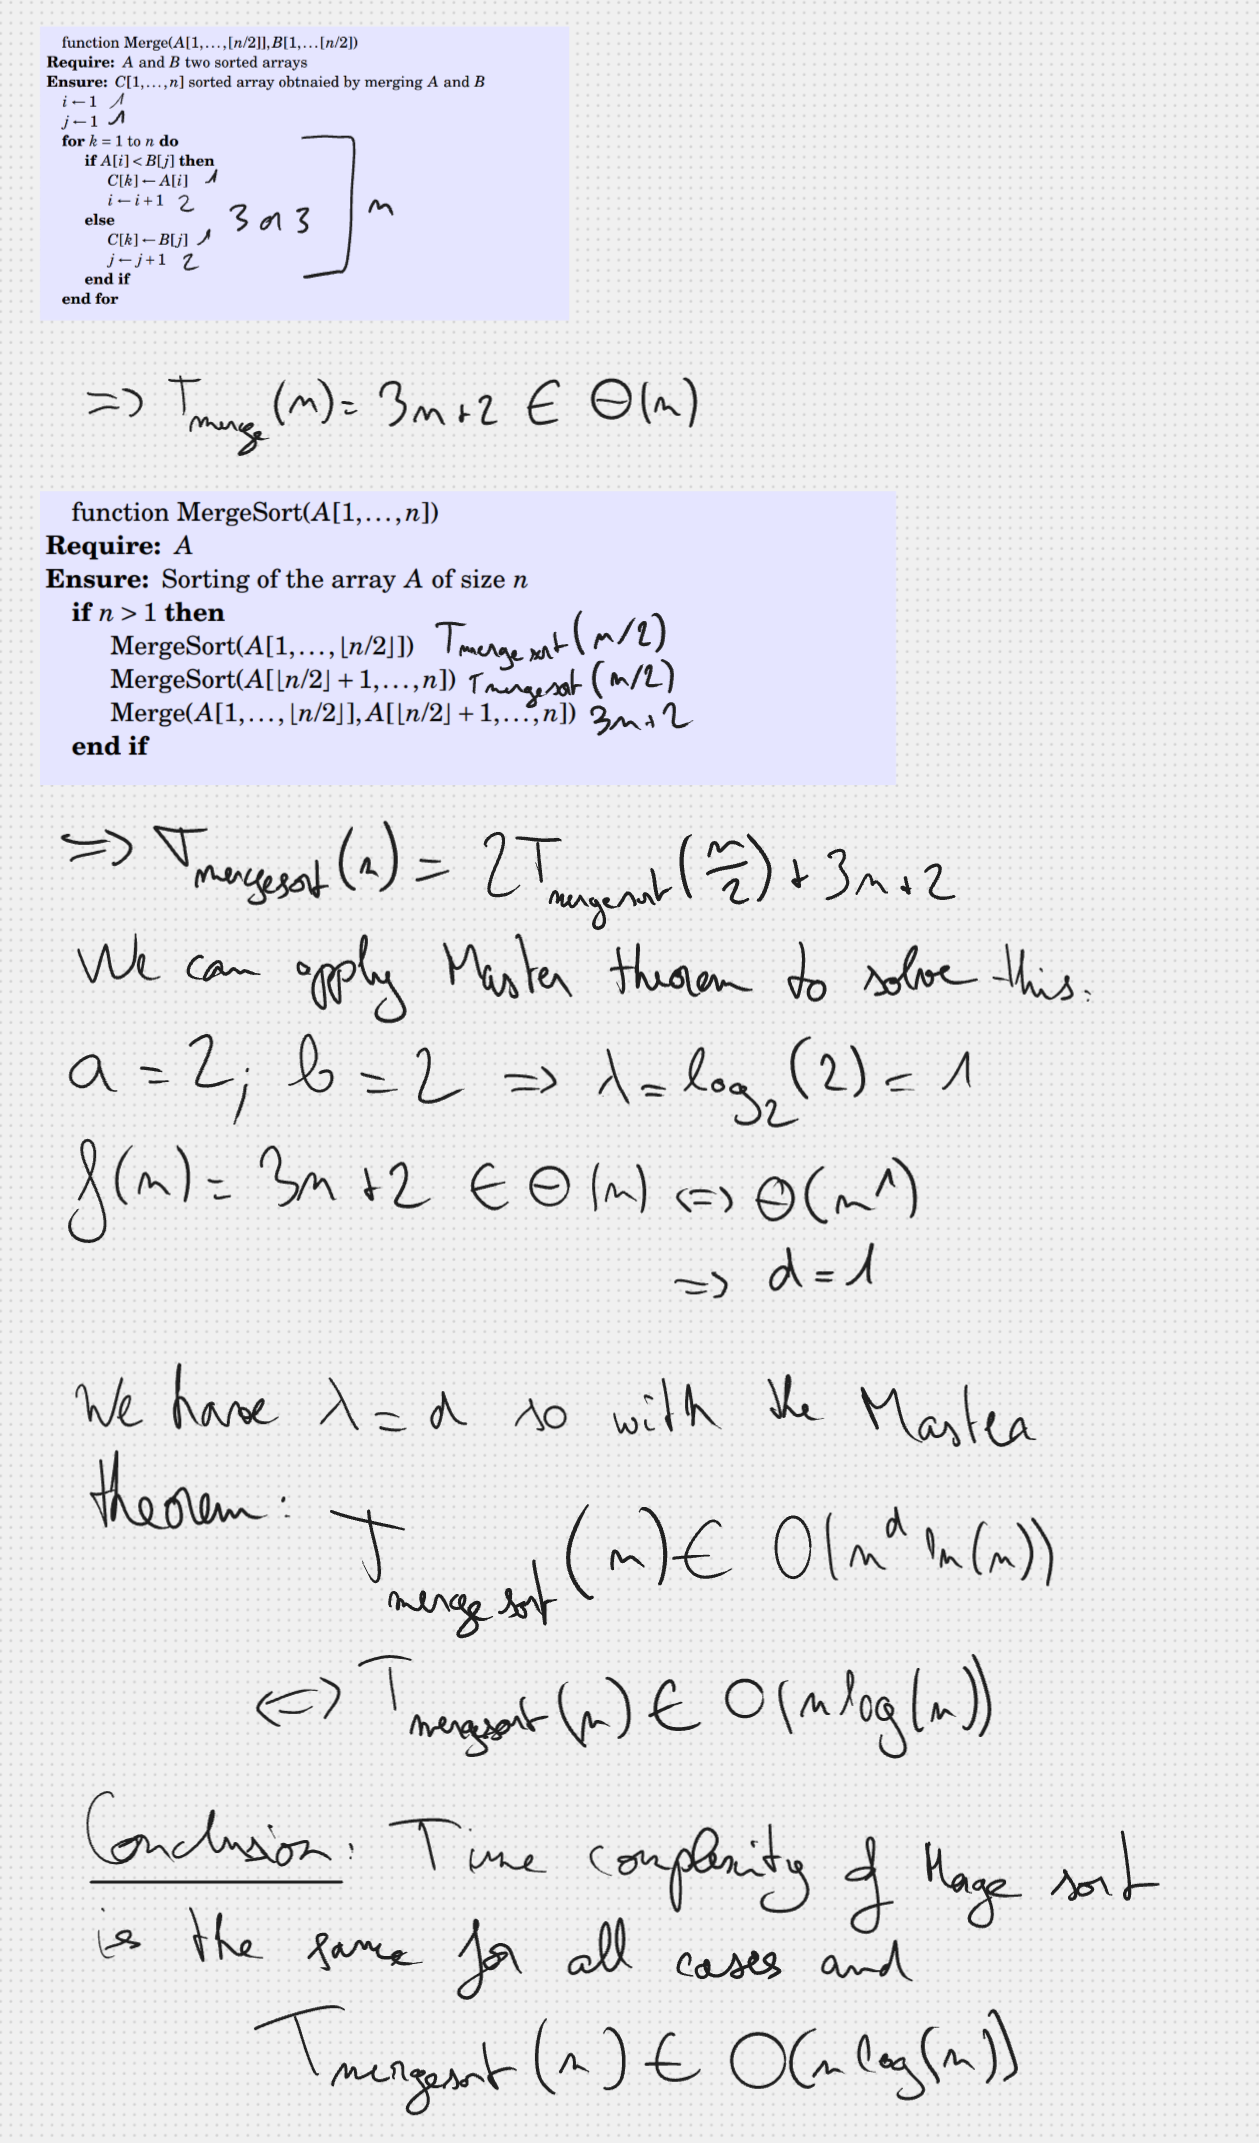 function Merge(A[1,…,[n/2]],B[1,…[n/2])
Require: A and B two sorted arrays
Ensure: C[1,…,n] sorted array obtnaied by merging A and B
i←1 1
j←1 1
for k = 1 to n do
if A[i] < B[j] then
C[k]←A[i] 1
i←i+1 2
else 3 or 3 ] n
C[k]←B[j] 1
j←j+1 2
end if
end for
=> T_merge(n) = 3n+2 ∈ Θ(n)
function MergeSort(A[1,…,n])
Require: A
Ensure: Sorting of the array A of size n
if n > 1 then
MergeSort(A[1,…,⌊n/2⌋]) T_merge sort(n/2)
MergeSort(A[⌊n/2⌋+1,…,n]) T_mergesort(n/2)
Merge(A[1,…,⌊n/2⌋],A[⌊n/2⌋+1,…,n]) 3n+2
end if
=> T_mergesort(n) = 2T_mergesort(n/2) + 3n+2
We can apply Master theorem to solve this:
a = 2; b = 2 => λ = log_2(2) = 1
f(n) = 3n+2 ∈ Θ(n) <=> Θ(n^1)
=> d = 1
We have λ = d so with the Master
theorem:
T_merge sort(n) ∈ O(n^d ln(n))
<=> T_mergesort(n) ∈ O(n log(n))
Conclusion: Time complexity of Merge sort
is the same for all cases and
T_mergesort(n) ∈ O(n log(n))